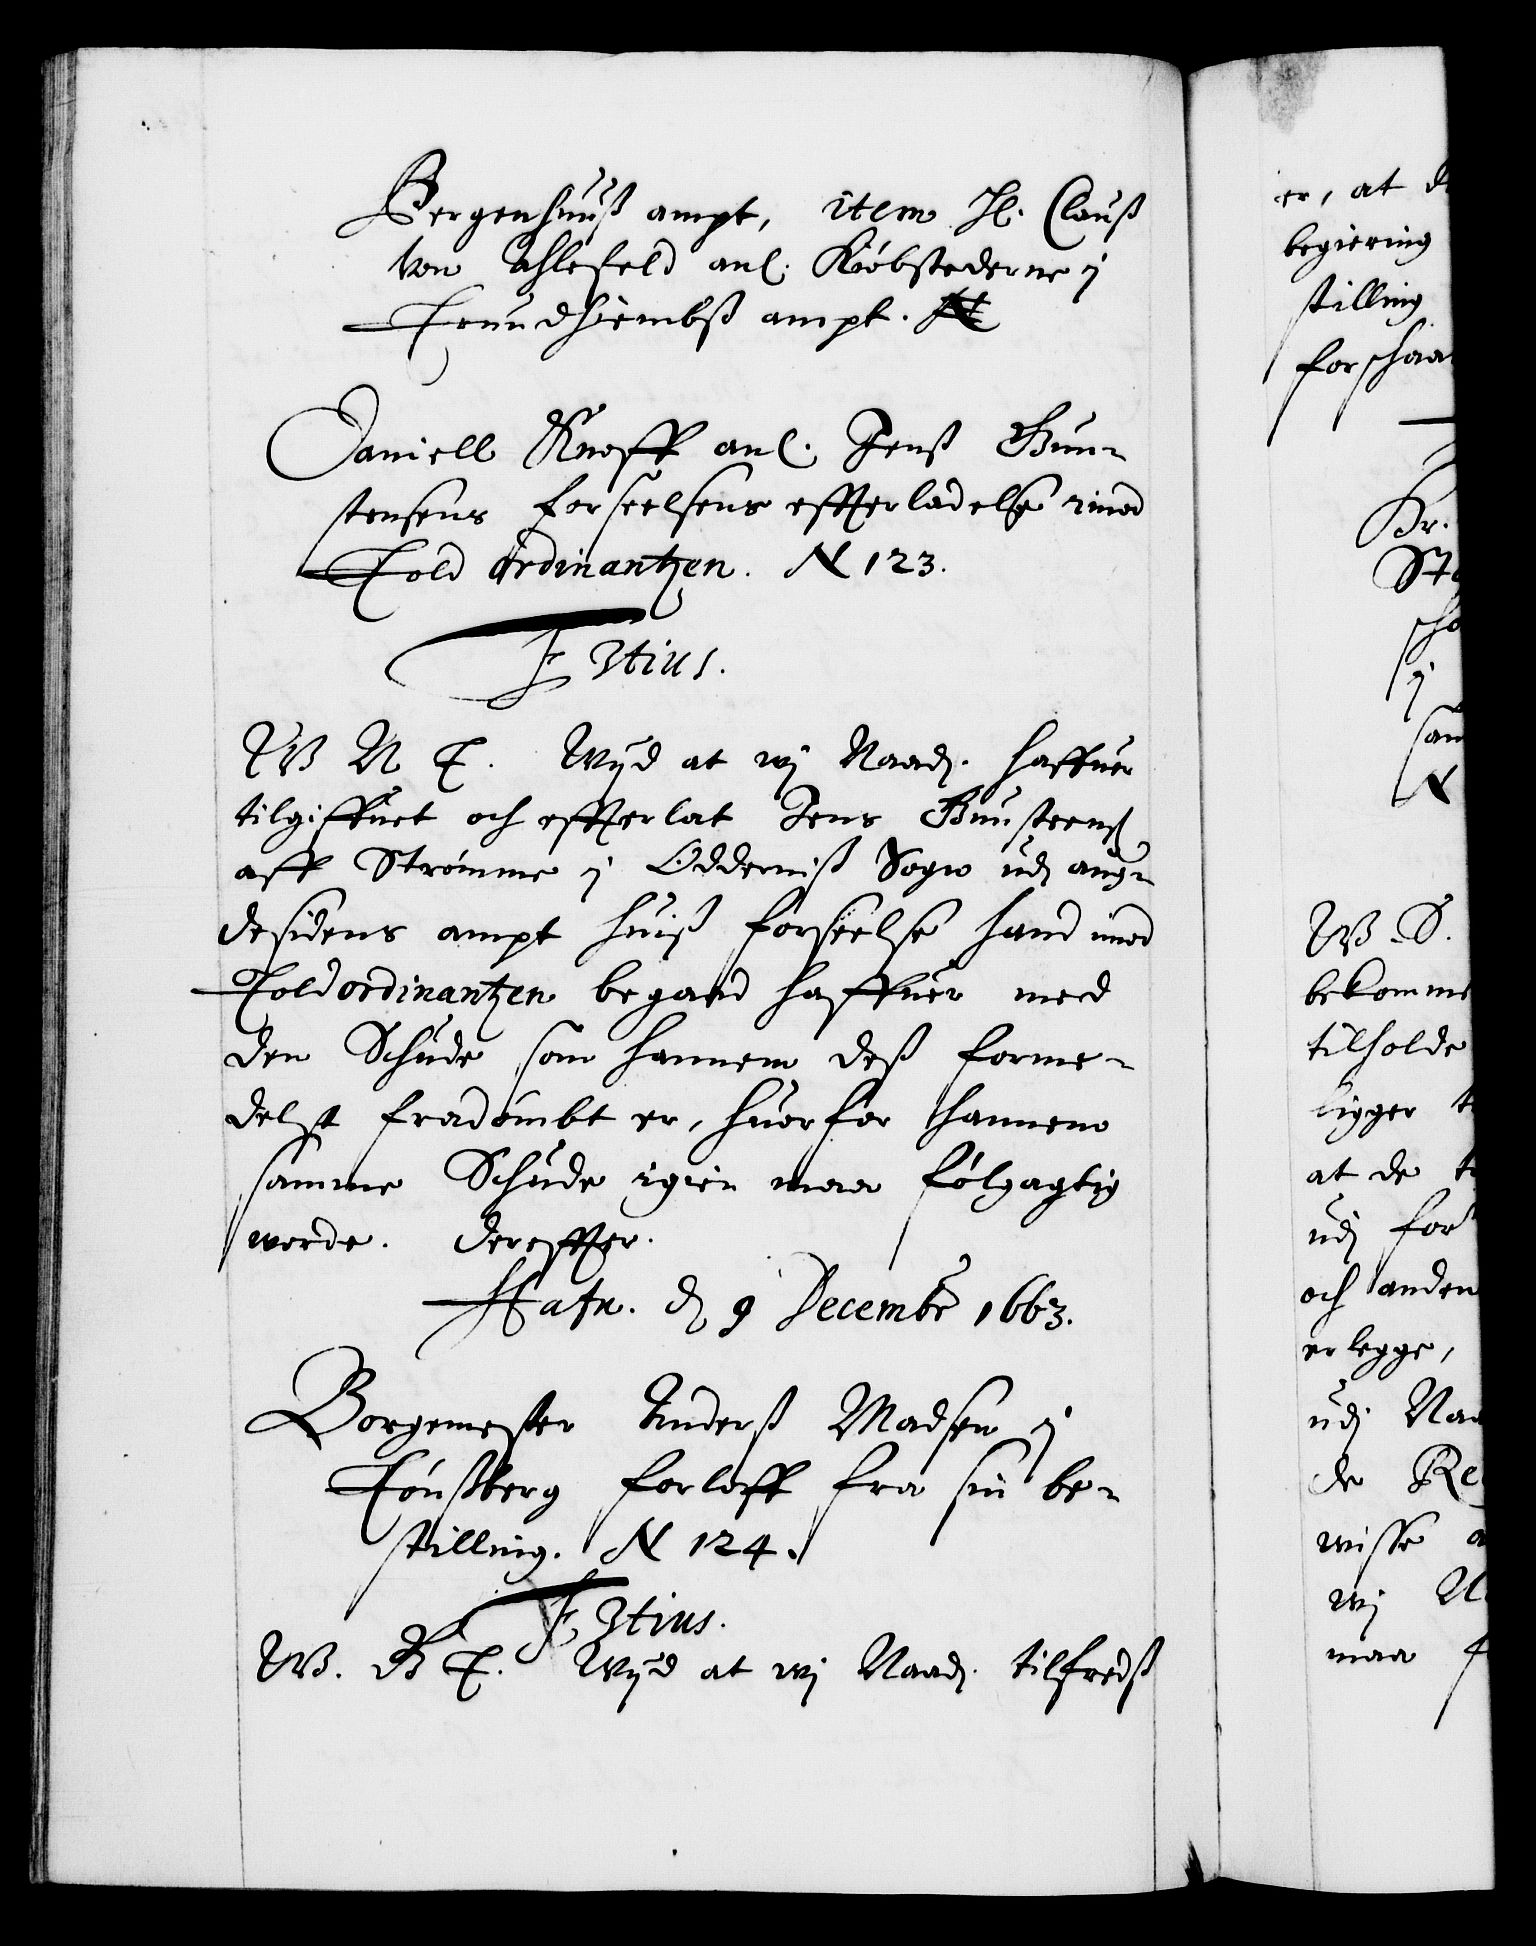 Bergenhuuß ampt, item Jl. Clauß
von Ahlefeld anl. Kiöbstederne i
Trundhiembß ampt. N
Daniell Knoff anl. Jenß Gun-
stensens forseelsens effterladelse imod
Told ordinantzen. N 123.
F 3tius.
W N T. Wijd at wi Naadj. haffuer
tilgiffuet och effterlat Jens Gunsteenß
aff Strömme i Odderniß Sogn udj ang-
desidens ampt huiß forseelse hand imod
Toldordinantzen begaaed haffuer med
den Schude som hannem deß forme-
delst fradömbt er, huorfor hannem
samme Schude igien maa fölgagtig
worde. dereffter.
Hafn. d 9 Decembr 1663.
Borgemester Anderß Madsen i
Tönßberg forloff fra sin be-
stilling. N 124.
F 3tius.
W. G T. Wijd at wi Naadj. tilfredß
er, at d
begiering
stilling
forschaa
Hr.
St
scho
i
sam
N
W. S.
bekomme
tilholde
ligger t
at de t
udj for
och anden
erlegge,
udj Naa
de Re
wisse a
wi N
maa f